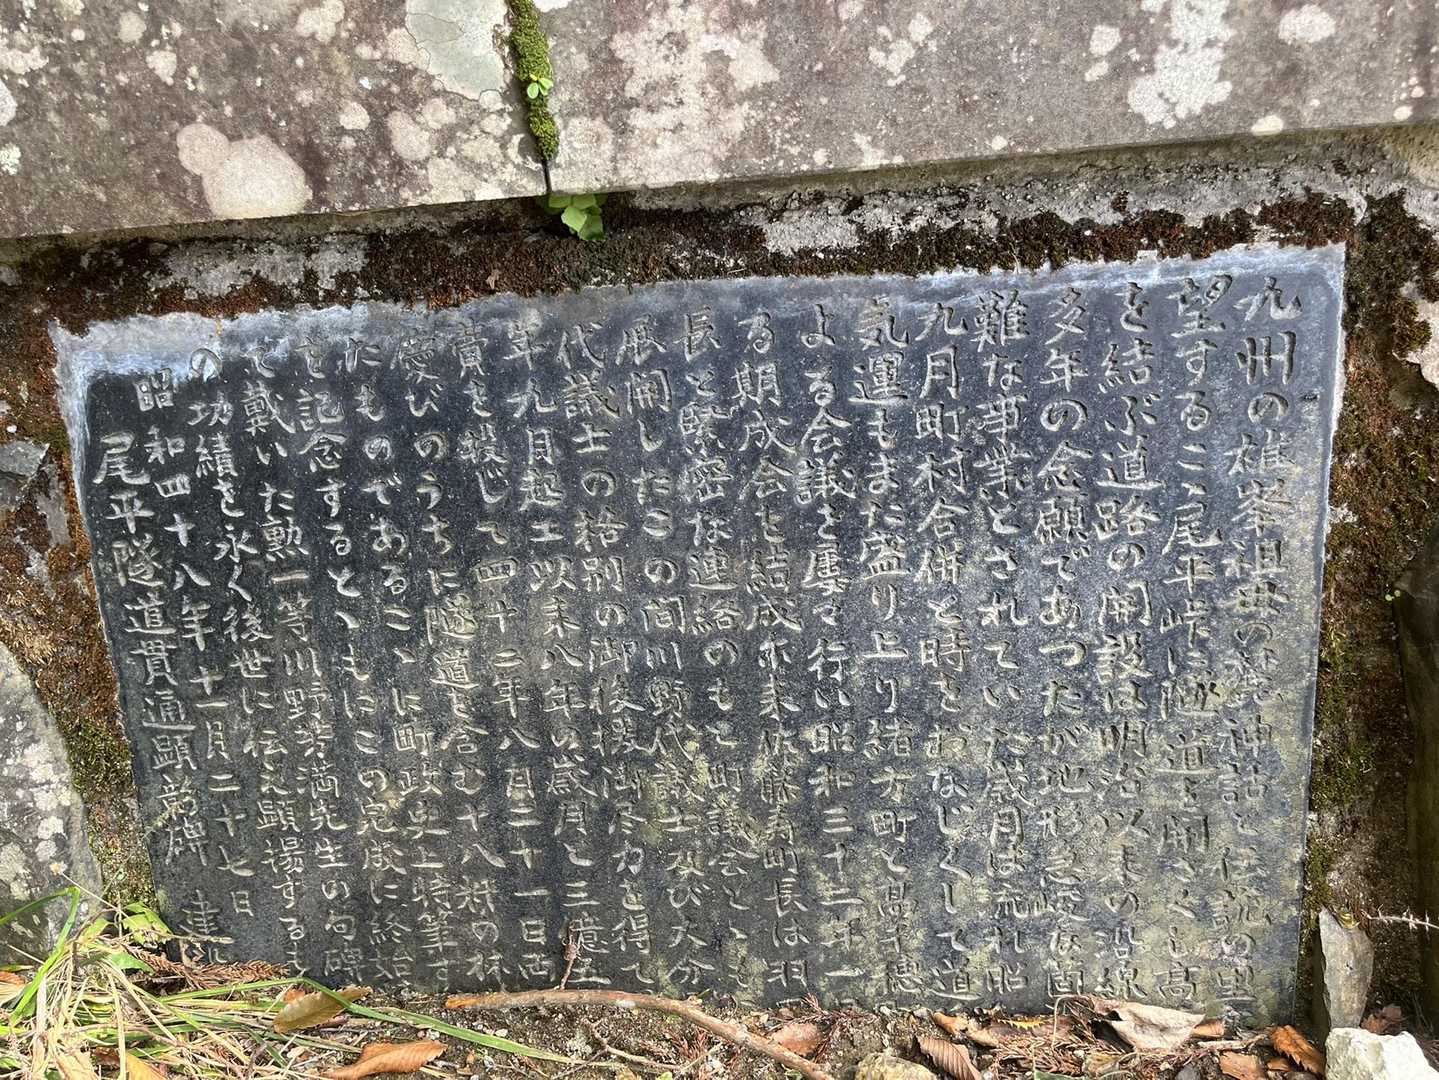 九州の雄峯祖母の麓神話と伝説の里
望するこゝ尾平峠に隧道を開さくし高
を結ぶ道路の開設は明治以来の沿線
多年の念願であつたが地形急峻な
難な事業とされていた歳月は流れ昭
九月町村合併と時をおなじくして道
気運もまた盛り上り緒方町と高千穂
よる会議を屡々行い昭和三十三年一
る期成会を結成 来佐藤寿町長は羽
長と緊密な連絡のもと町議会と
展開したこの間川野代議士及び大分
代議士の格別の御後援御尽力を得て
年九月起工以来八年い歳月と三億
費を投じて四十二年八月二十一日両
慶びのうちに隧道を含む十八粁の林
たものであるこゝに町政史上特筆す
を記念するとゝもにこの完成に終始
て戴いた勲一等川野芳満先生の句碑
の功績を永く後世に伝え顕揚するも
昭和四十八年十一月二十七日
尾平隧道貫通顕彰碑 建